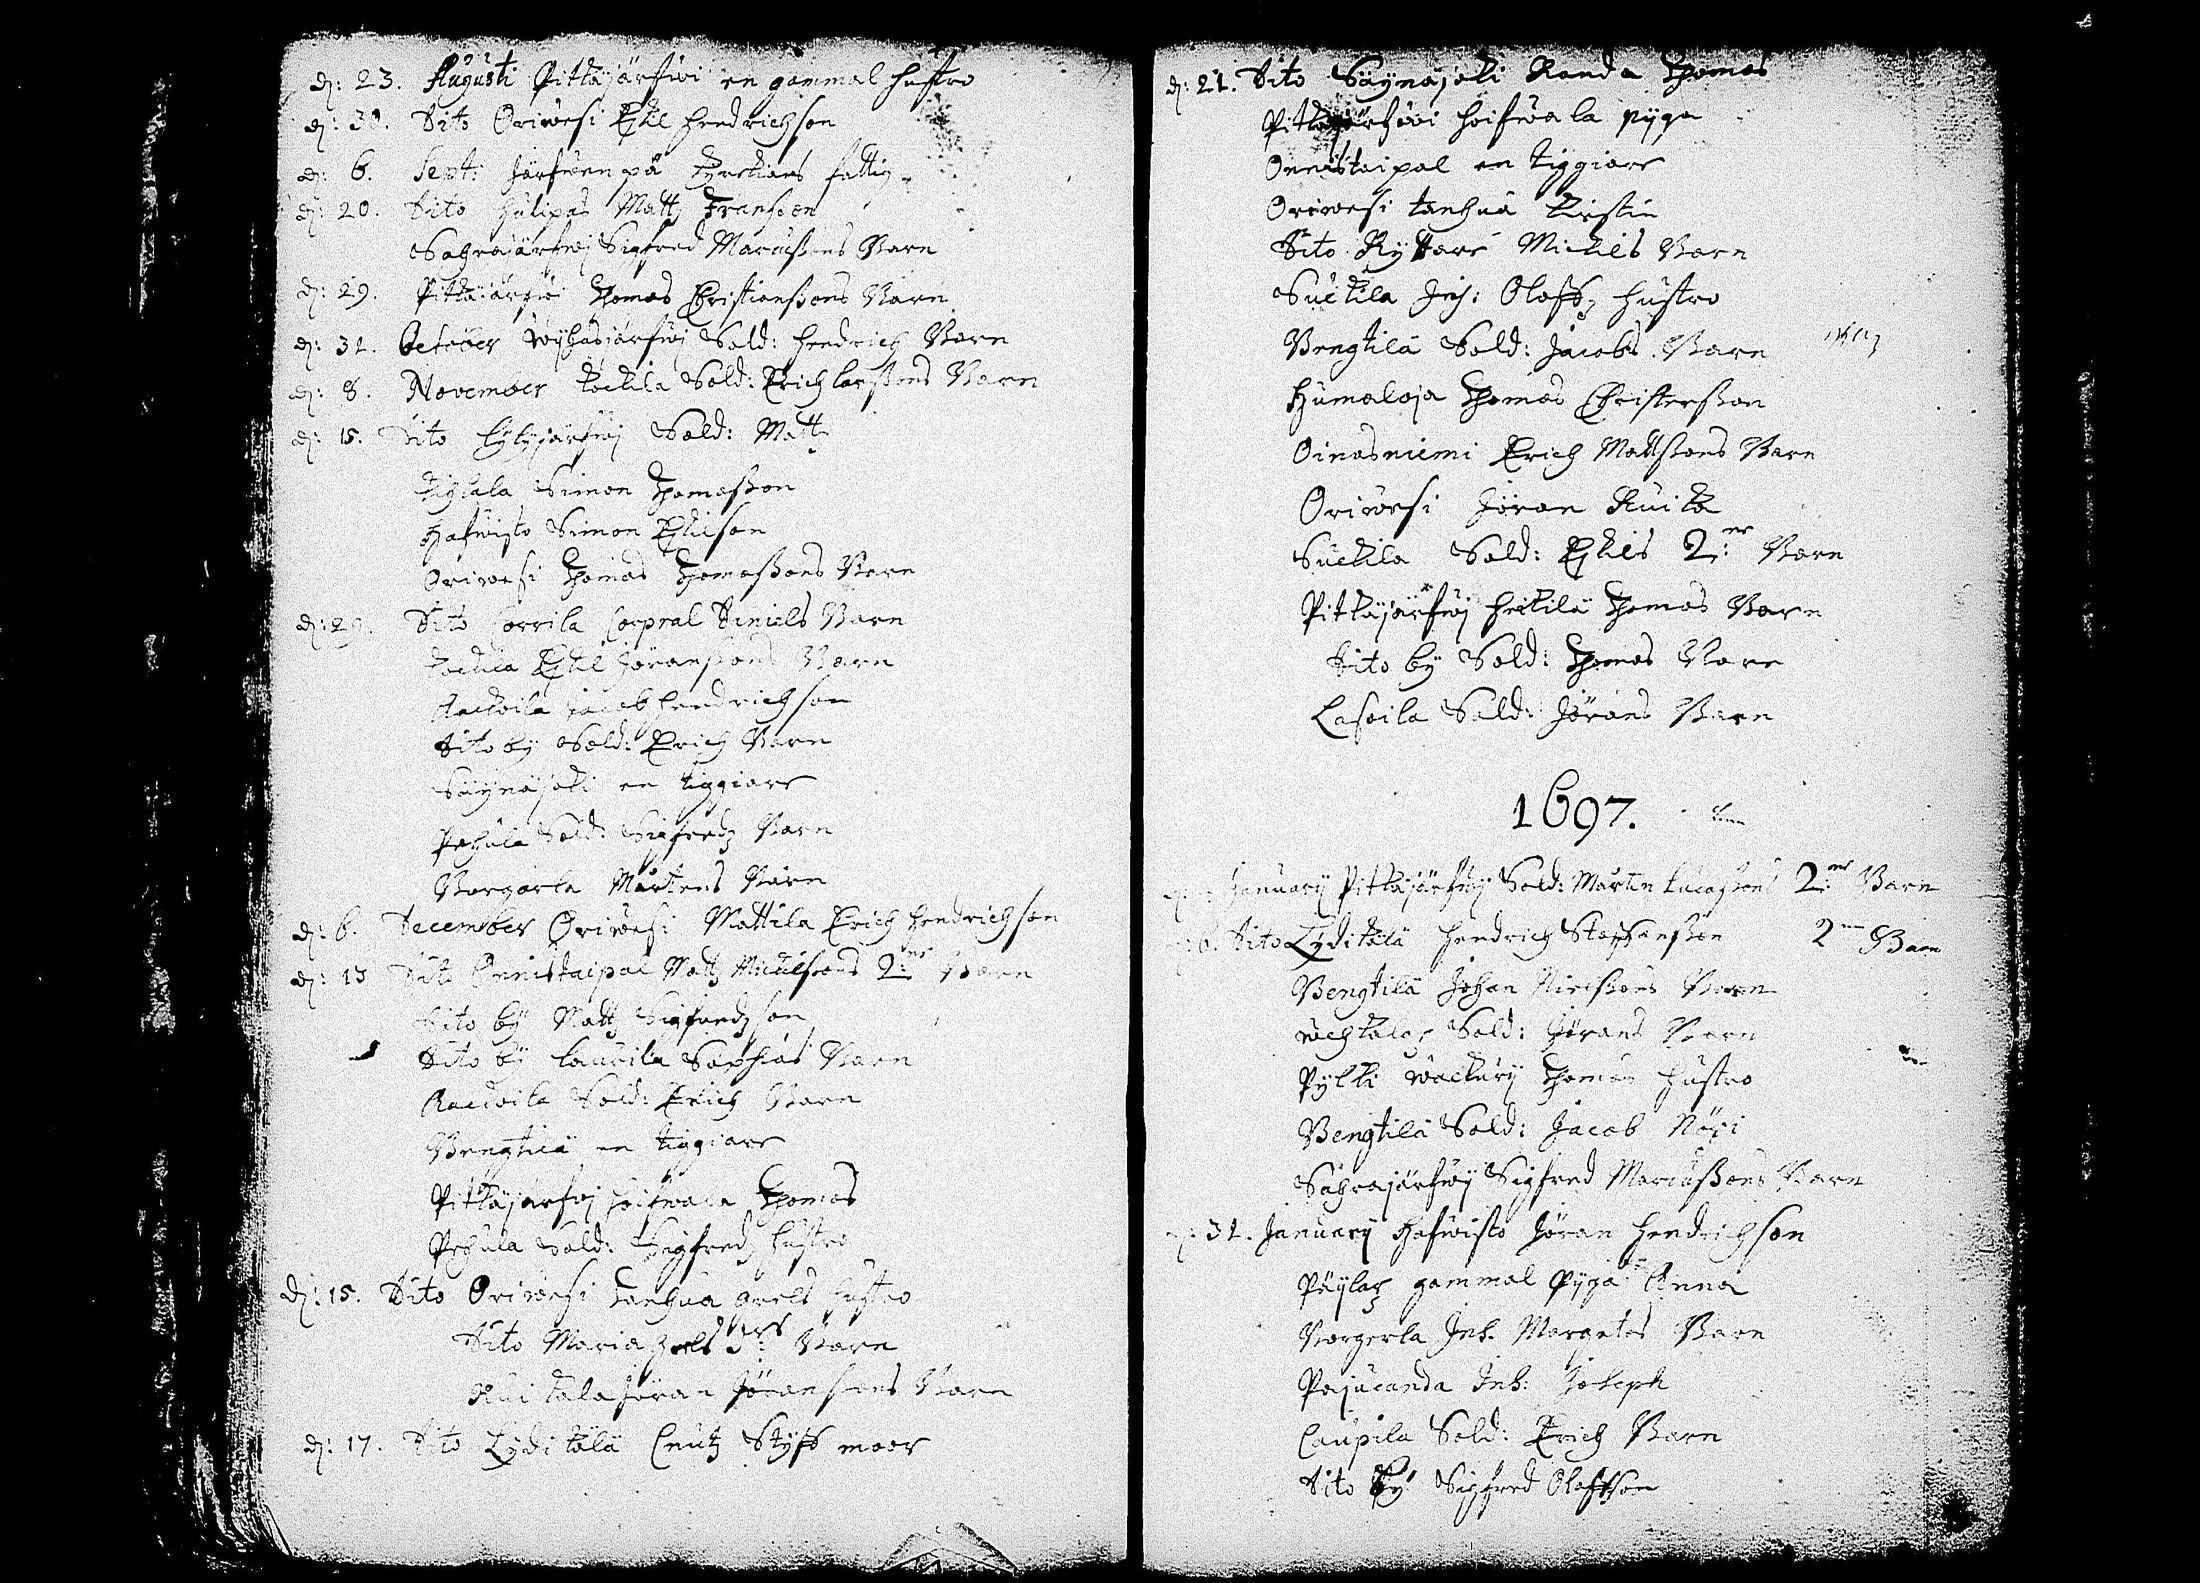 d: 23. Augusti Pittkäjärfwi en gammal hustro
d: 30. Dito Oriwesi Eskel Hendrichson
d: 6. Sept: Järfwenpä fattig
d: 20. Dito Hulipas Matz Franson
Sahrajärfwj Sigfred Marcussons Barn
d: 29. Pittkäjärfwi Thomas Christianssons Barn
d: 31. October Wyhasjärfwj Sold: Hendrich Barn
d: 8. November Köckila Sold: Erich Larssons Barn
d: 15. Dito Lylyjärfwj Sold: Matz
Simon Thomasson
Hafwisto Simon Eskilson
Oriwesi Thomas Thomassons Barn
d: 29. Dito Corrila Corpral Diniels Barn
Eskil Jöranssons Barn
Rackoila Jacob Hendrichson
Dito by Sold: Erich Barn
Säynäjoki en tiggiare
Pehula Sold: Sigfredz Barn
Borgarla Mårtens Barn
d: 6. December Oriwesi Mattila Erich Hendrichson
d: 13 Dito Onnistaipal Matz Mickelsons 2:ne Barn
Dito by Matz Sigfredzson
Dito by Laucoila Sophias Barn
Rackoila Sold: Erich Barn
Bengtilä en tiggiare
Pittkäjärfwj Hoifwala Thomas
Pehula Sold: Sigfredz hustro
d: 15. Dito Oriwesi Tanhua Axels hustro
Dito Maria 3: Barn
Ruitala Jöran Jöransons Barn
d: 17. Dito Lyditälä Cnutz Styfs moor
d: 21. Dito Säynäjoki Randa Thomas
Pittkäjärfwi Hoifwala pyga
Onnistaipal en tiggiare
Oriwesi Tanhua Kirstin
Dito Ryttare Mickels Barn
Suckila Inh: Olofz Hustro
Bengtilä Sold: Jacobs Barn
Humaloja Thomas Christersson
Oinasniemi Erich Mattssons Barn
Oriwesi Jöran Ruitta
Suckila Sold: Eskils 2:ne Barn
Pittkäjärfwj Heickilä Thomas Barn
Dito by Sold: Thomas Barn
Lasoila Sold: Jörans Barn
1697.
January Pittkäjärfwj Sold: Mårtin Lucassons 2:ne Barn
6. Dito Lyditälä Hendrich Staphansson 2 Barn
Bengtilä Johan Nielssons Barn
Sold: Jörans Barn
Pylki Thomas Hustro
Bengtilä Sold: Jacob
Sahrajärfwj Sigfred Marcussons Barn
d: 31. January Hafwisto Jöran Hendrichson
gammal pyga Anna
Borgerla Inh. Margetas Barn
Pajucanda Inh: Joseph
Caupila Sold: Erich Barn
Dito by Sigfred Olofsson